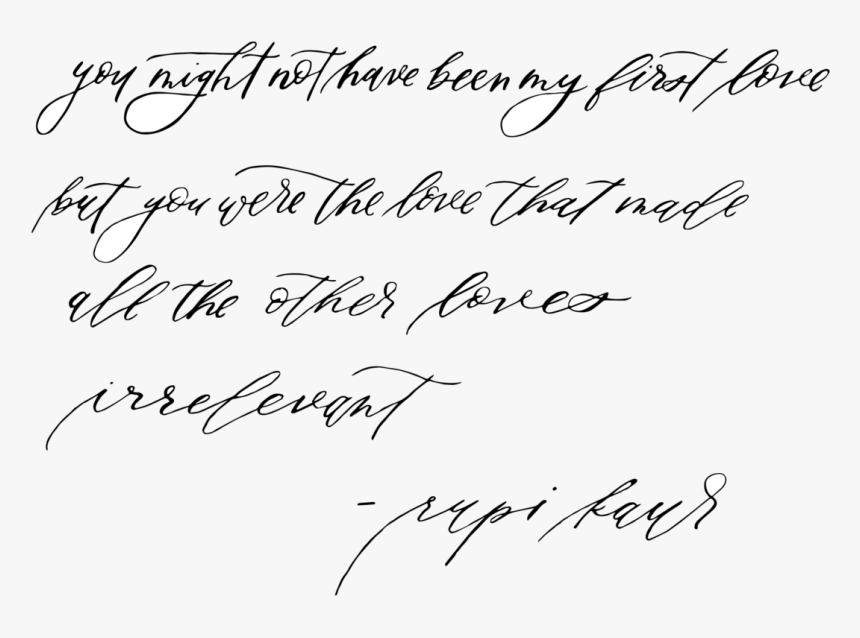 you might not have been my first love
but you were the love that made
all the other loves
irrelevant
- rupi kaur